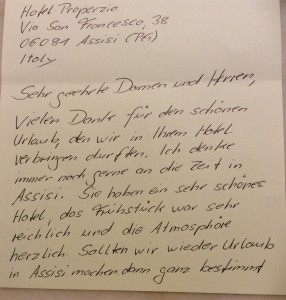 Hotel Properzio
Via San Francesco, 38
06081 Assisi (PG)
Italy
Sehr geehrte Damen und Herren,
Vielen Dank für den schönen
Urlaub, den wir in Ihrem Hotel
verbringen durften. Ich denke
immer noch gerne an die Zeit in
Assisi. Sie haben ein sehr schönes
Hotel, das Frühstück war sehr
reichlich und die Atmosphäre
herzlich. Sollten wir wieder Urlaub
in Assisi machen dann ganz bestimmt